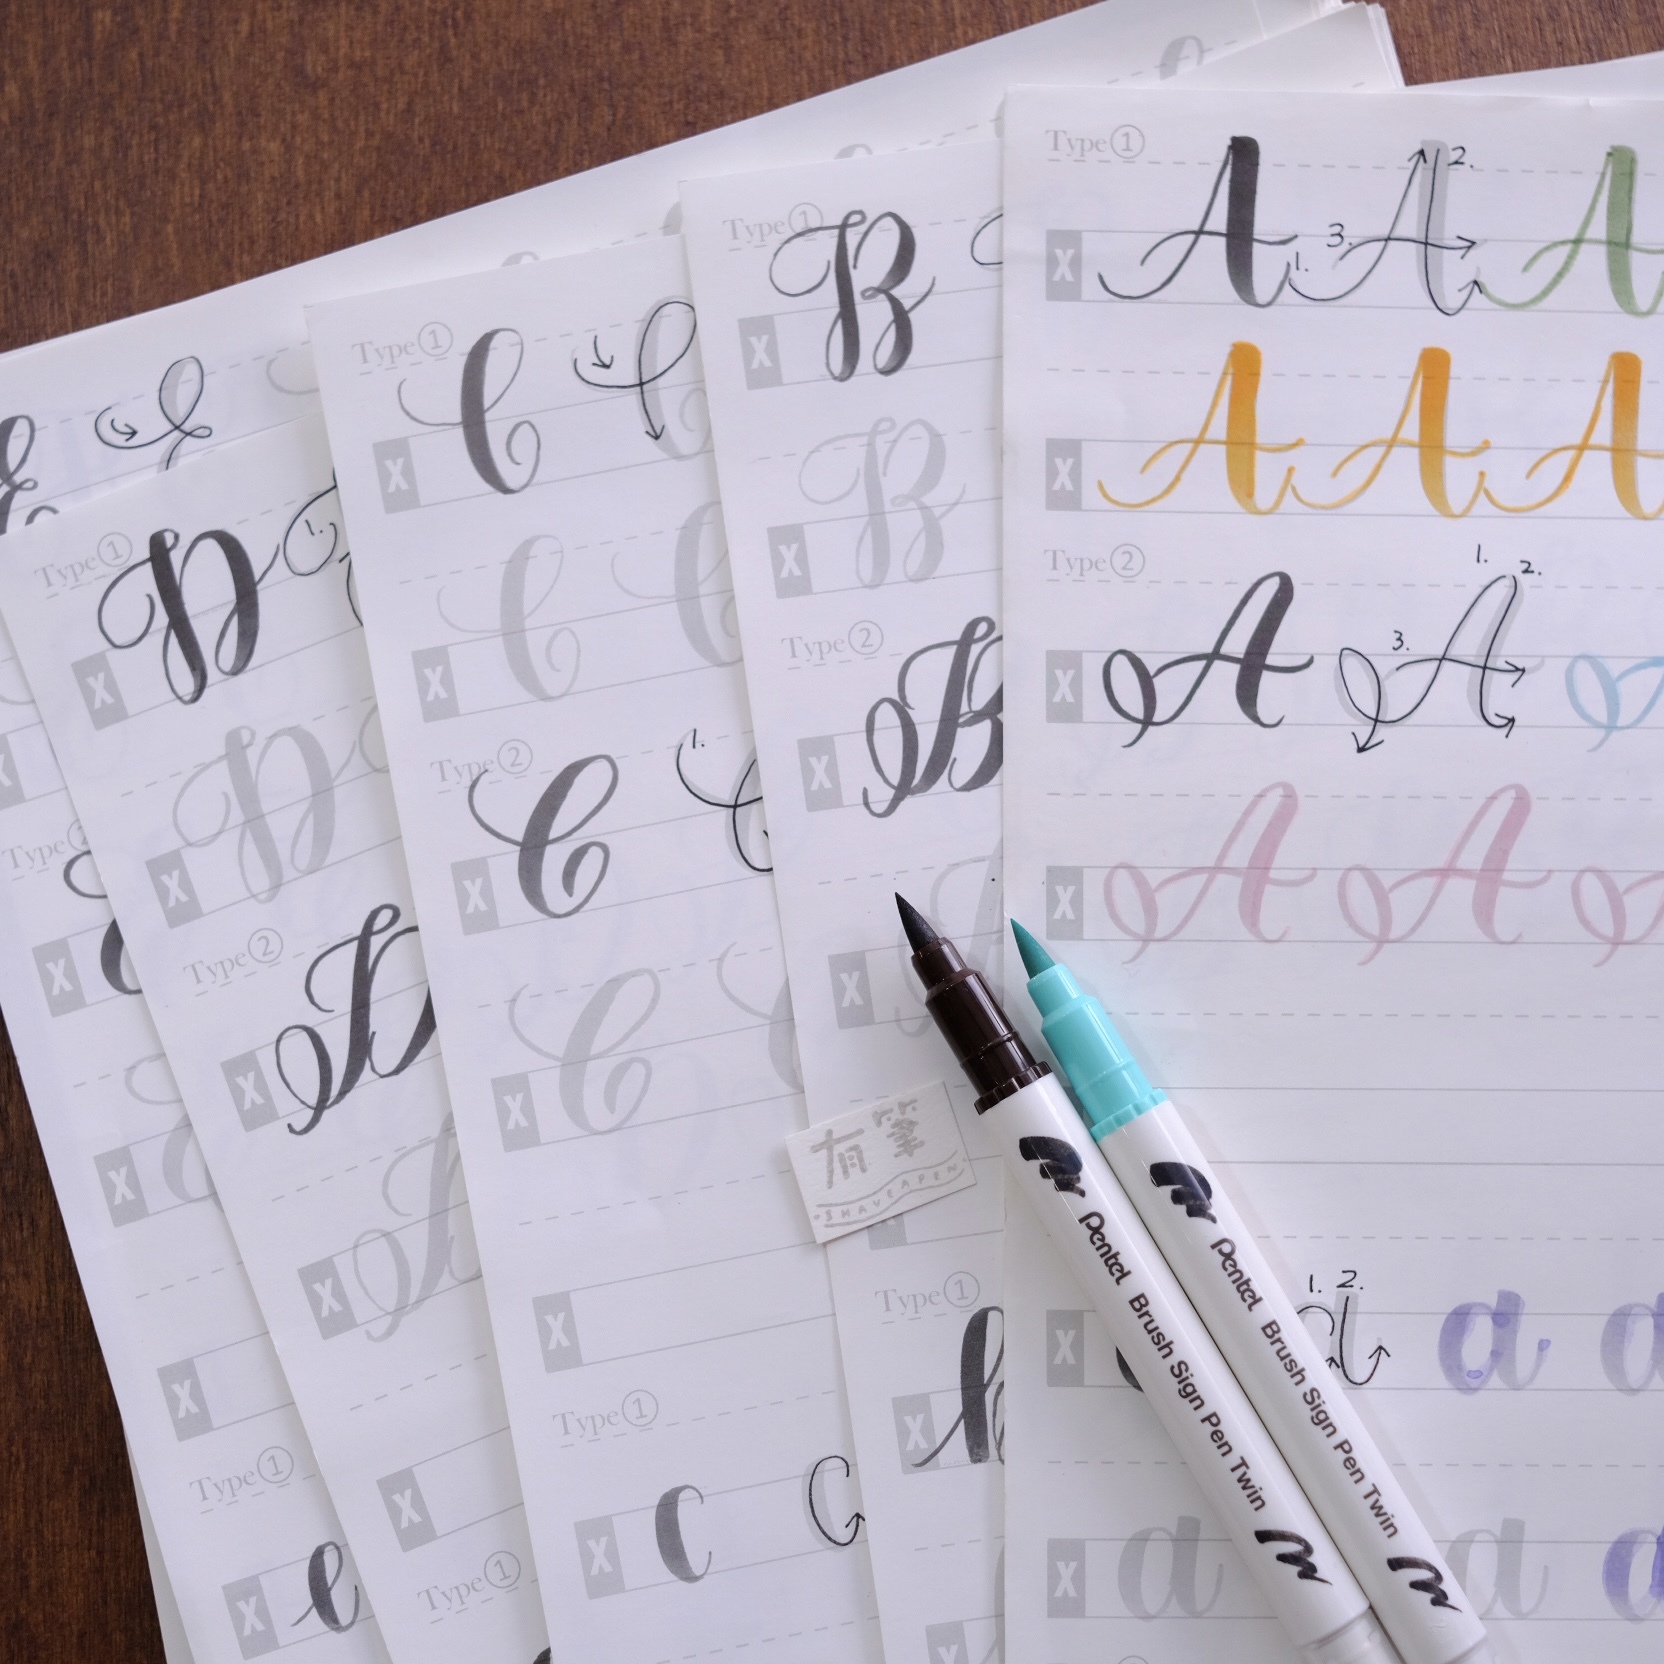 Type①
A 2. A
3. 1.
X
A A A
X
Type②
1. 2.
A 3. A
X
A A
X
1. 2.
X a a a
X a a a
Type①
B
X
B
X
Type②
B
X
X
Type①
X
Type①
C C
X
C C
X
Type②
C 1. C
X
C
X
X
Type①
X c c
Type①
D 1.
X
D
X
Type②
D
X
D
X
X
Type①
E E
Type②
X
X
X
Type①
X e
有筆
SHAVEAPEN
Pentel Brush Sign Pen Twin
Pentel Brush Sign Pen Twin